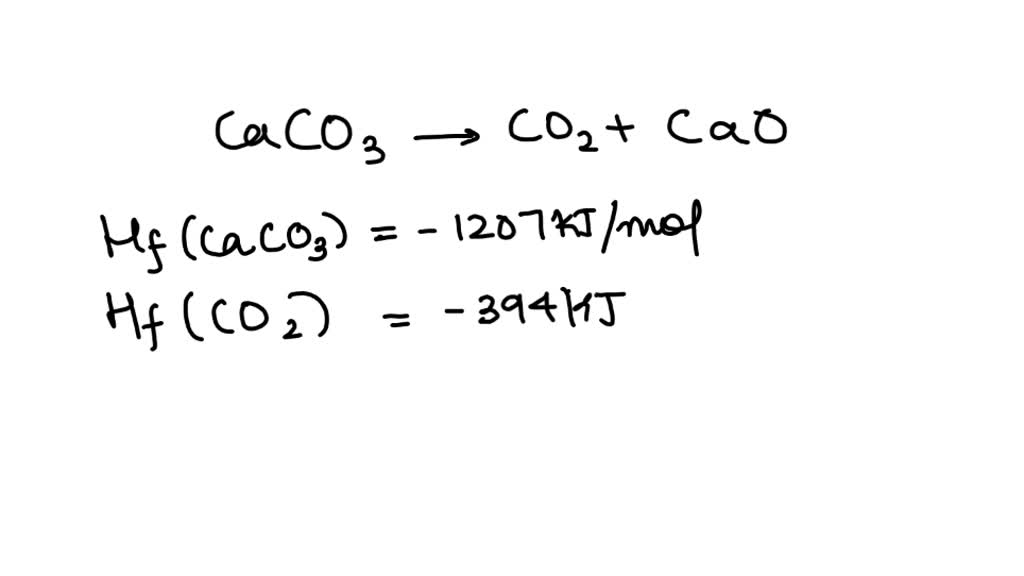 CaCO₃ → CO₂ + CaO
Hf (CaCO₃) = - 1207 kJ/mol
Hf (CO₂) = - 394 kJ